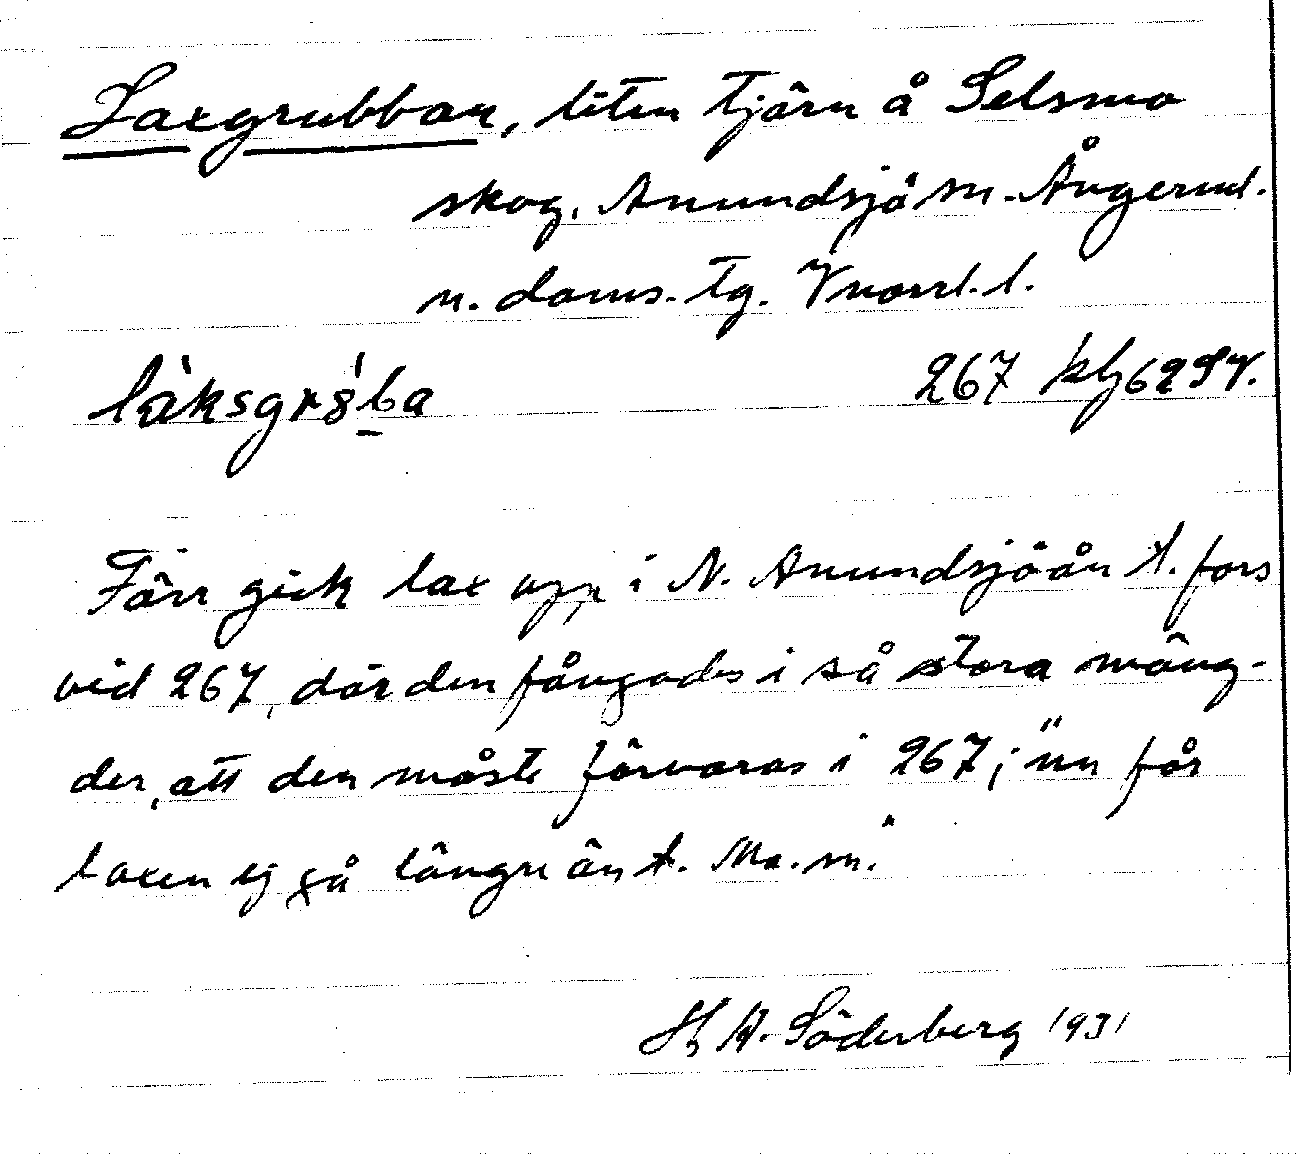 Laxgrubban, liten tjärn å Selsmo
skog. Anundsjö sn. Ångerml.
n. doms. tg. Vnorrl. l.
267 klj 62 SV.
Förr gick lax upp i N. Anundsjöån t. fors
vid 267, där den fångades i så stora mäng-
der, att den måste förvaras i 267; "nu får
laxen ej gå längre än t. Mo. sn."
H W. Söderberg 1931